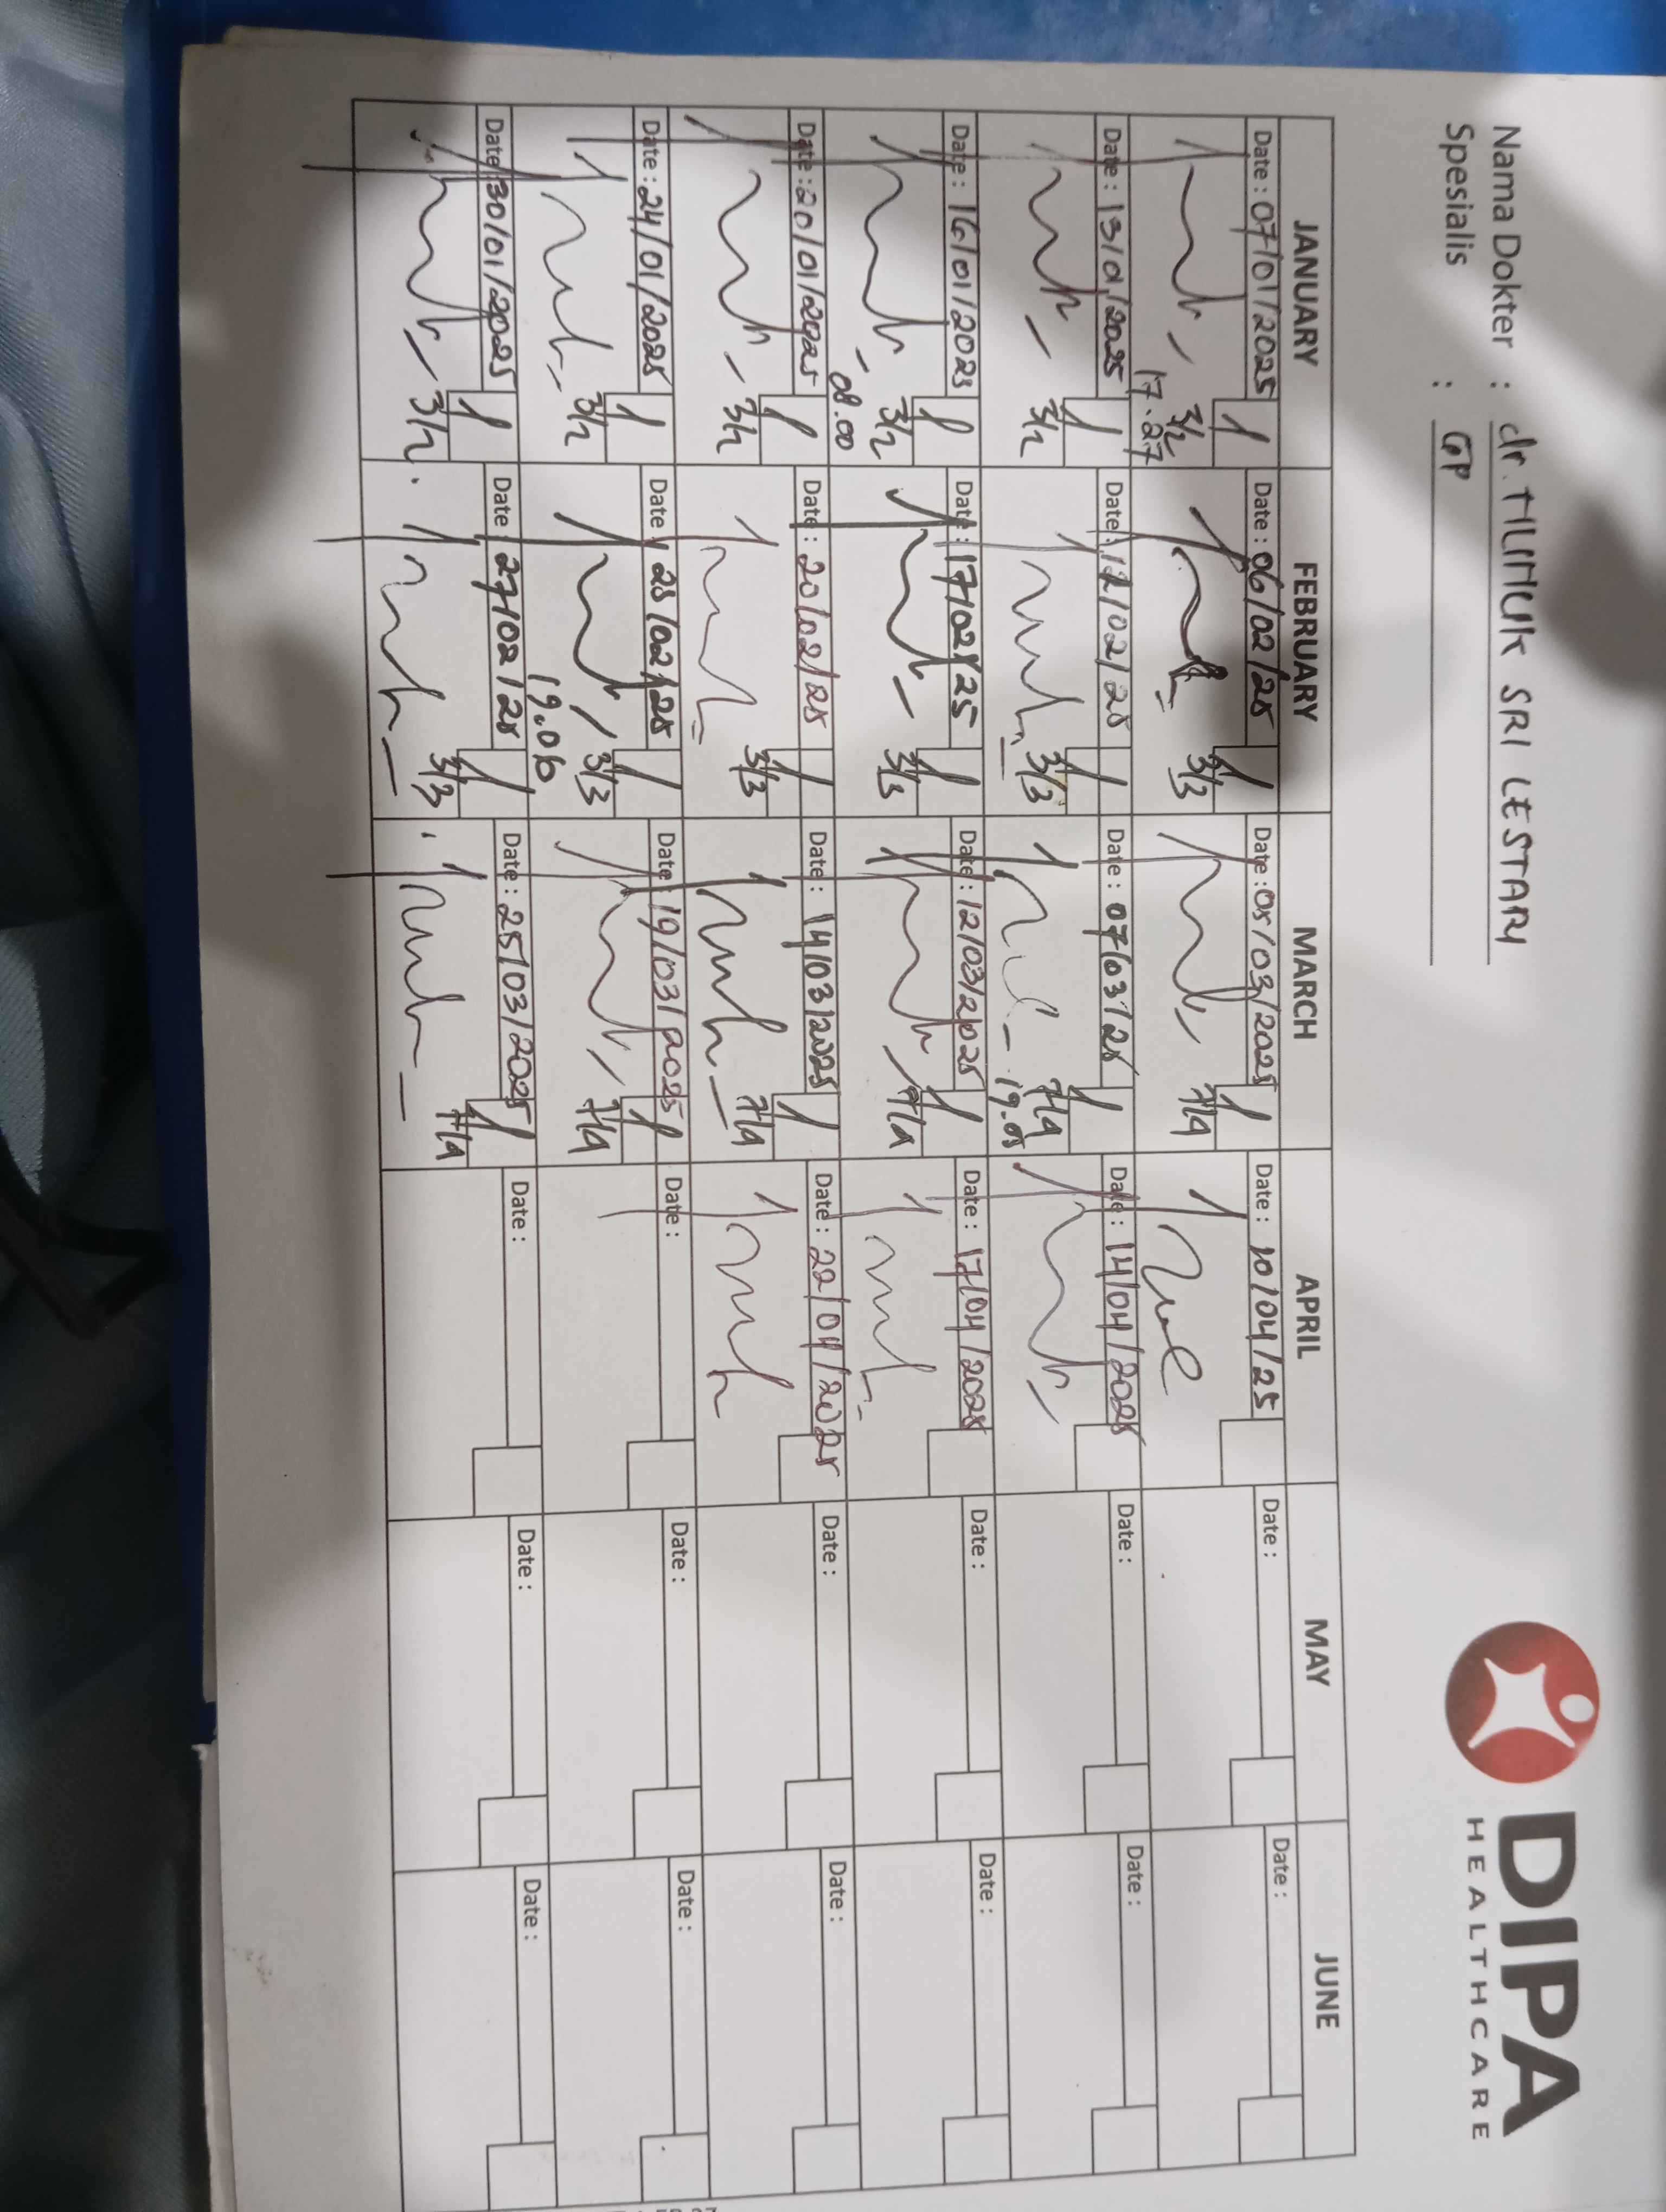 DIPA
HEALTHCARE
Nama Dokter : dr. TITITUK SRI LESTARI
Spesialis : GP
JANUARY FEBRUARY MARCH APRIL MAY JUNE
Date : 07/01/2025 1 Date : 06/02/25 1 Date : 05/03/2025 1 Date : 10/04/25 Date : Date :
3/2 3/3 7/4
17.27
Date : 13/01/2025 1 Date : 12/02/25 1 Date : 07/03/25 1 Date : 14/04/2025 Date : Date :
3/2 3/3 7/4
19.05
Date : 16/01/2025 1 Date : 17/02/25 1 Date : 12/03/2025 1 Date : 17/04/2025 Date : Date :
3/2 3/3 7/4
08.00
Date : 20/01/2025 1 Date : 20/02/25 1 Date : 14/03/2025 1 Date : 22/04/2025 Date : Date :
3/2 3/3 7/4
Date : 24/01/2025 1 Date : 25/02/25 1 Date : 19/03/2025 1 Date : Date : Date :
3/2 3/3 7/4
19.06
Date : 30/01/2025 1 Date : 27/02/25 1 Date : 25/03/2025 1 Date : Date : Date :
3/2 3/3 7/4